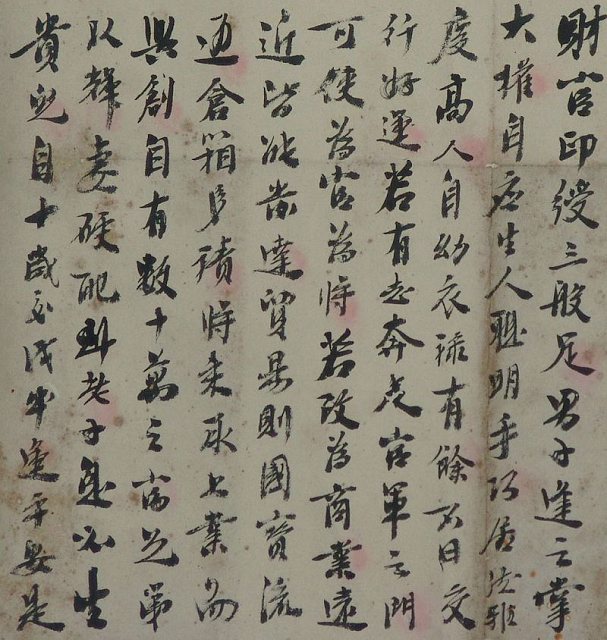 財官印綬三般足男子逢之掌
大權自in生人聰明手巧
度高人自幼衣祿有餘不日交
行好運若有志奔走官軍之門
可使為官為將若改為商業遠
近皆能發達貿易則國寶流
通倉箱多積將來承上業而
興創自有數十萬之富兄弟
以輝妻硬配到老子息必生
貴兒自十歲交戊午運平安是